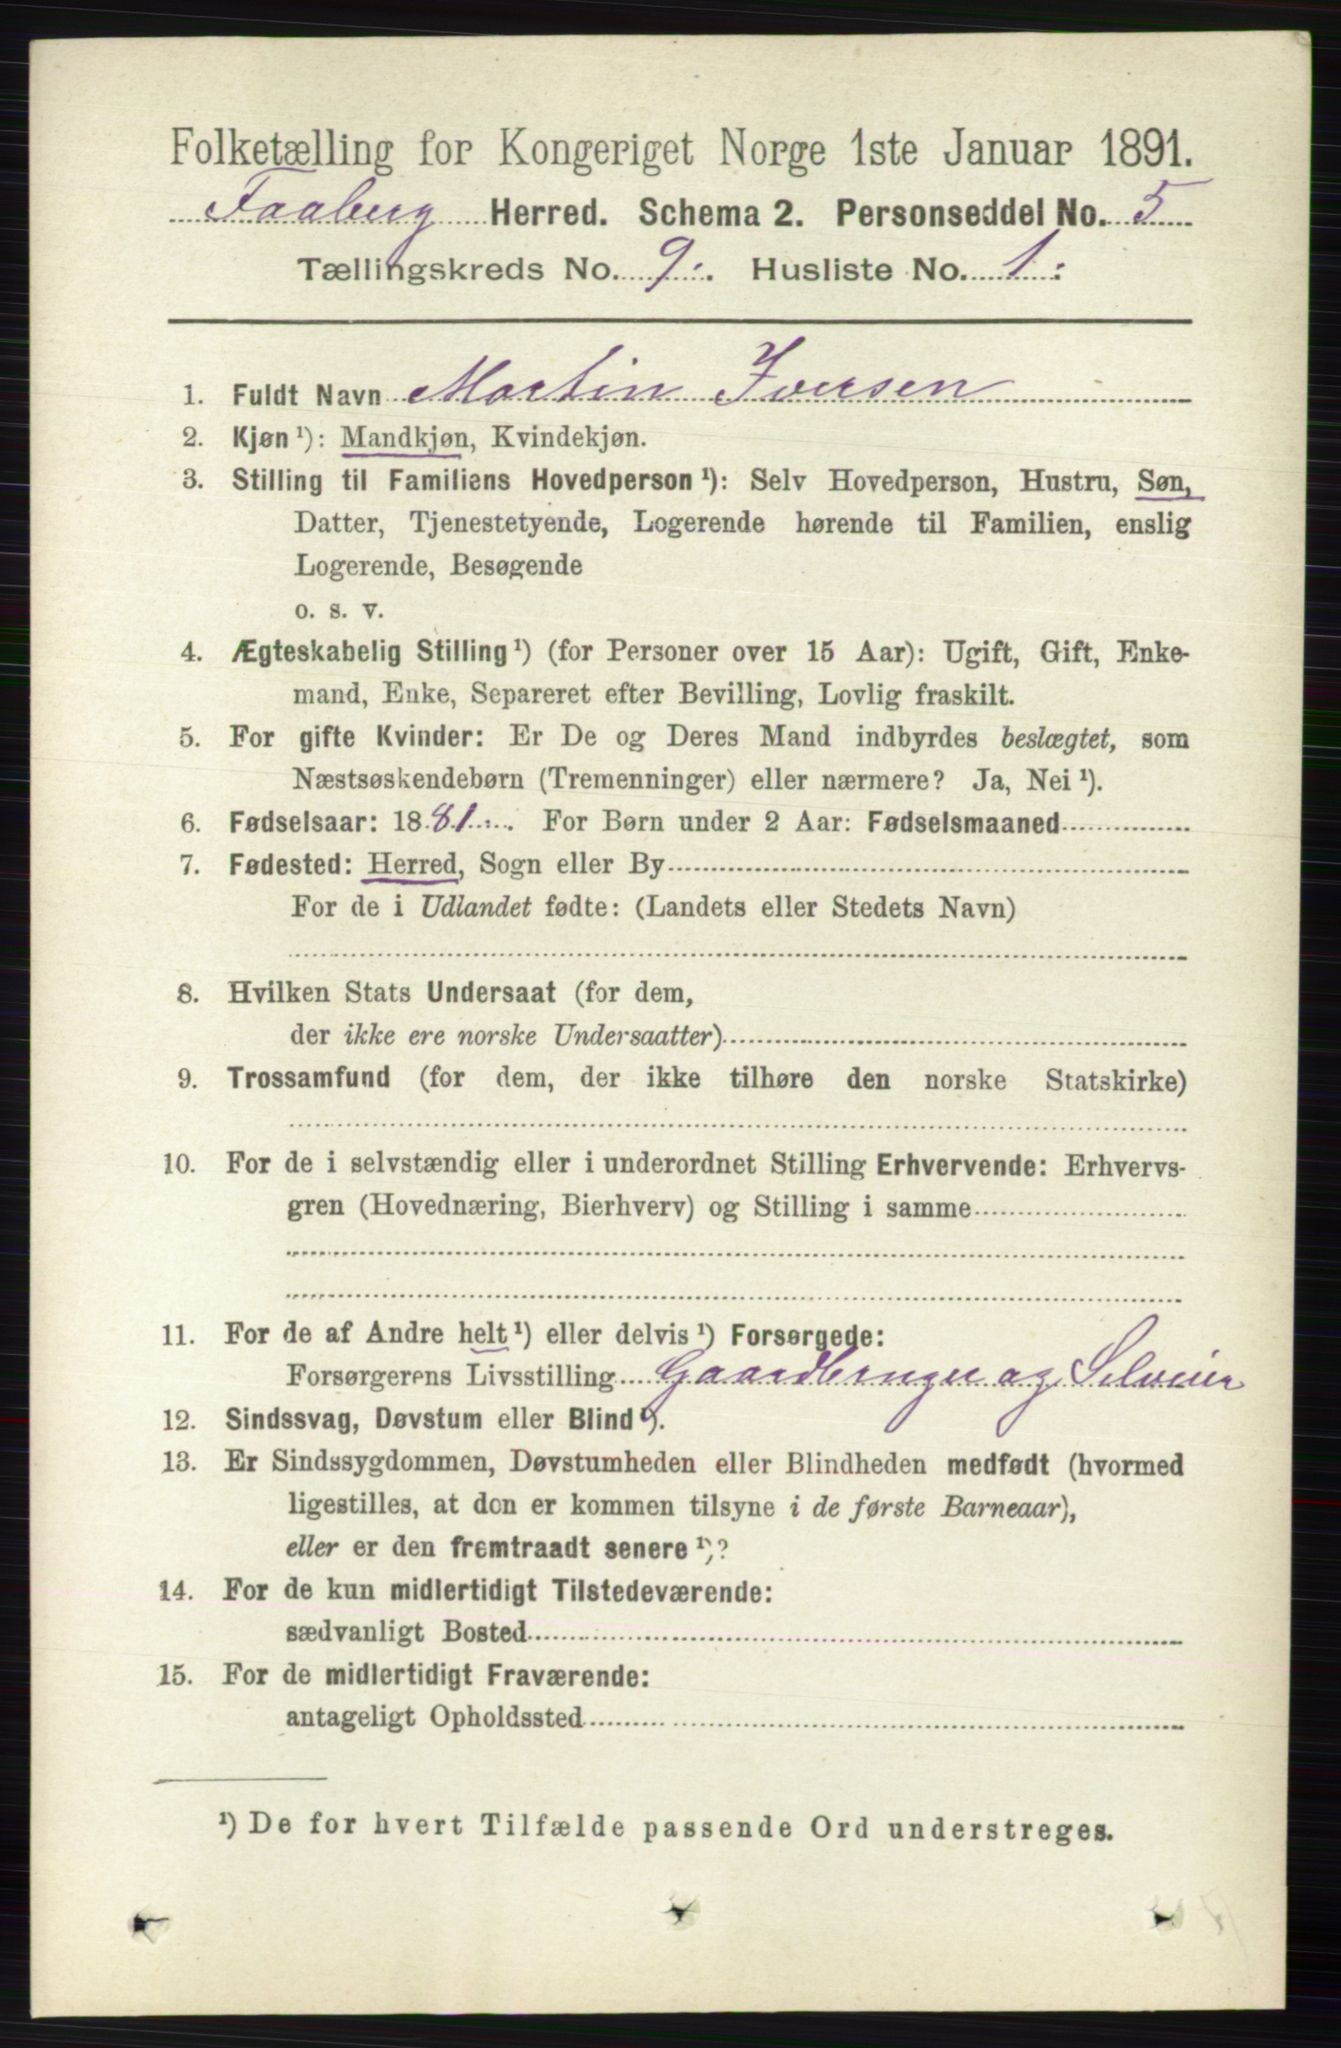 Folketælling for Kongeriget Norge 1ste Januar 1891.
Faaberg Herred. Schema 2. Personseddel No. 5
Tællingskreds No. 9. Husliste No. 1.
1. Fuldt Navn Martin Iversen
2. Kjøn ¹): Mandkjøn, Kvindekjøn.
3. Stilling til Familiens Hovedperson ¹): Selv Hovedperson, Hustru, Søn,
Datter, Tjenestetyende, Logerende hørende til Familien, enslig
Logerende, Besøgende
o. s. v.
4. Ægteskabelig Stilling ¹) (for Personer over 15 Aar): Ugift, Gift, Enke-
mand, Enke, Separeret efter Bevilling, Lovlig fraskilt.
5. For gifte Kvinder: Er De og Deres Mand indbyrdes beslægtet, som
Næstsøskendebørn (Tremenninger) eller nærmere? Ja, Nei ¹).
6. Fødselsaar: 1881. For Børn under 2 Aar: Fødselsmaaned
7. Fødested: Herred, Sogn eller By
For de i Udlandet fødte: (Landets eller Stedets Navn)
8. Hvilken Stats Undersaat (for dem,
der ikke ere norske Undersaatter)
9. Trossamfund (for dem, der ikke tilhøre den norske Statskirke)
10. For de i selvstændig eller i underordnet Stilling Erhvervende: Erhvervs-
gren (Hovednæring, Bierhverv) og Stilling i samme
11. For de af Andre helt ¹) eller delvis ¹) Forsørgede:
Forsørgerens Livsstilling Gaardbruger og Selveier
12. Sindssvag, Døvstum eller Blind ¹).
13. Er Sindssygdommen, Døvstumheden eller Blindheden medfødt (hvormed
ligestilles, at den er kommen tilsyne i de første Barneaar),
eller er den fremtraadt senere ¹)?
14. For de kun midlertidigt Tilstedeværende:
sædvanligt Bosted
15. For de midlertidigt Fraværende:
antageligt Opholdssted
¹) De for hvert Tilfælde passende Ord understreges.